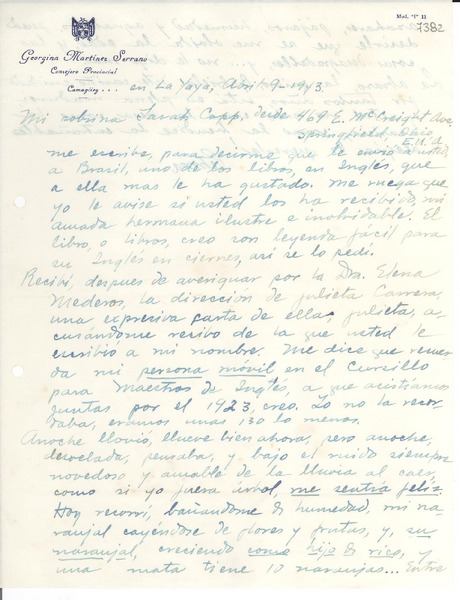 Mod. "I" 11
7382
Georgina Martínez Serrano
Consejero Provincial
Camagüey...
en La Yaya, Abril-9-1943.
Mi sobrina Sarah Copp, desde 469 E. McCreight Ave.
Springfield-Ohio
E.U. d
me escribe, para decirme que le envió a usted,
a Brasil, uno de los libros, en Inglés, que
a ella mas le ha gustado. Me ruega que
yo le avise si usted los ha recibido, mi
amada hermana ilustre e inolvidable. El
libro, o libros, creo son leyenda fácil para
su Inglés en ciernes, así se lo pedí.
Recibí, despues de averiguar por la Dra. Elena
Mederos, la dirección de Julieta Carrera,
una expresiva carta de ella, Julieta, a-
cusándome recibo de la que usted le
escribió a mi nombre. Me dice que recuer-
da mi persona movil en el Cursillo
para Maestros de Inglés, a que asistiamos
juntas por el 1923, creo. Yo no la recor-
daba, eramos unas 130 lo menos.
Anoche llovió, llueve bien ahora, pero anoche,
desvelada, pensaba, y bajo el ruido siempre
novedoso y amable de la lluvia al caer,
como si yo fuera árbol, me sentía feliz.
Hoy recorrí, bañandome de humedad, mi na-
ranjal cayéndose de flores y frutas, y, su
naranjal, creciendo como hijo de rico, y
una mata tiene 10 naranjas... Entre